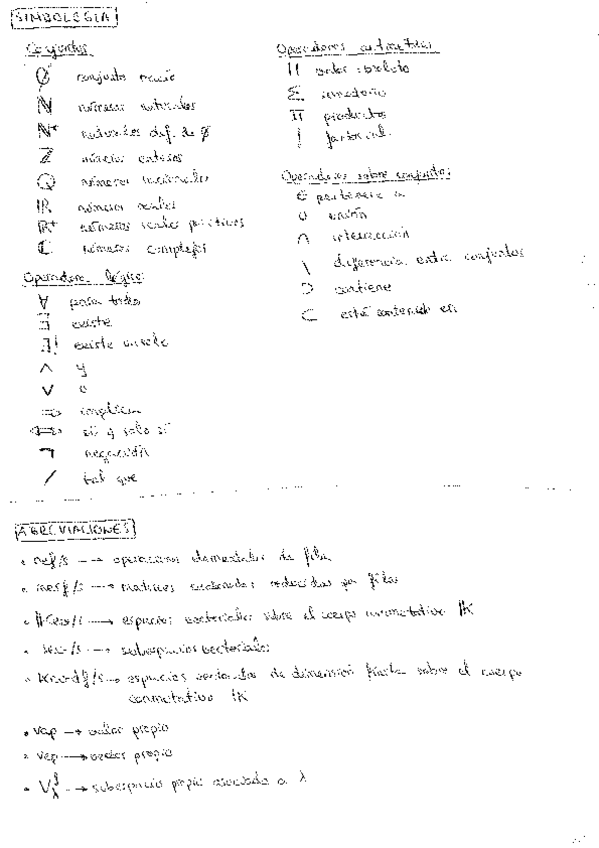 SIMBOLOGIA
Conjuntos
∅ conjunto vacío
ℕ números naturales
ℕ* naturales dif. de ∅
ℤ números enteros
ℚ números racionales
ℝ números reales
ℝ⁺ números reales positivos
ℂ números complejos
Operadores lógicos
∀ para todo
∃ existe
∃! existe un solo
∧ y
∨ o
⇒ implica
⇔ si y solo si
¬ negación
/ tal que
Operadores aritméticos
| | valor absoluto
Σ sumatorio
Π productos
! factorial
Operadores sobre conjuntos
∈ pertenece a
∪ unión
∩ intersección
\ diferencia entre conjuntos
⊃ contiene
⊂ está contenido en
ABREVIACIONES
• oef/s → operaciones elementales de fila
• merf/s → matrices escalonadas reducidas por filas
• Kev/s → espacios vectoriales sobre el cuerpo conmutativo K
• sev/s → subespacios vectoriales
• Kev-df/s → espacios vectoriales de dimensión finita sobre el cuerpo
conmutativo K
• vap → valor propio
• vep → vector propio
• V → subespacio propio asociado a λ